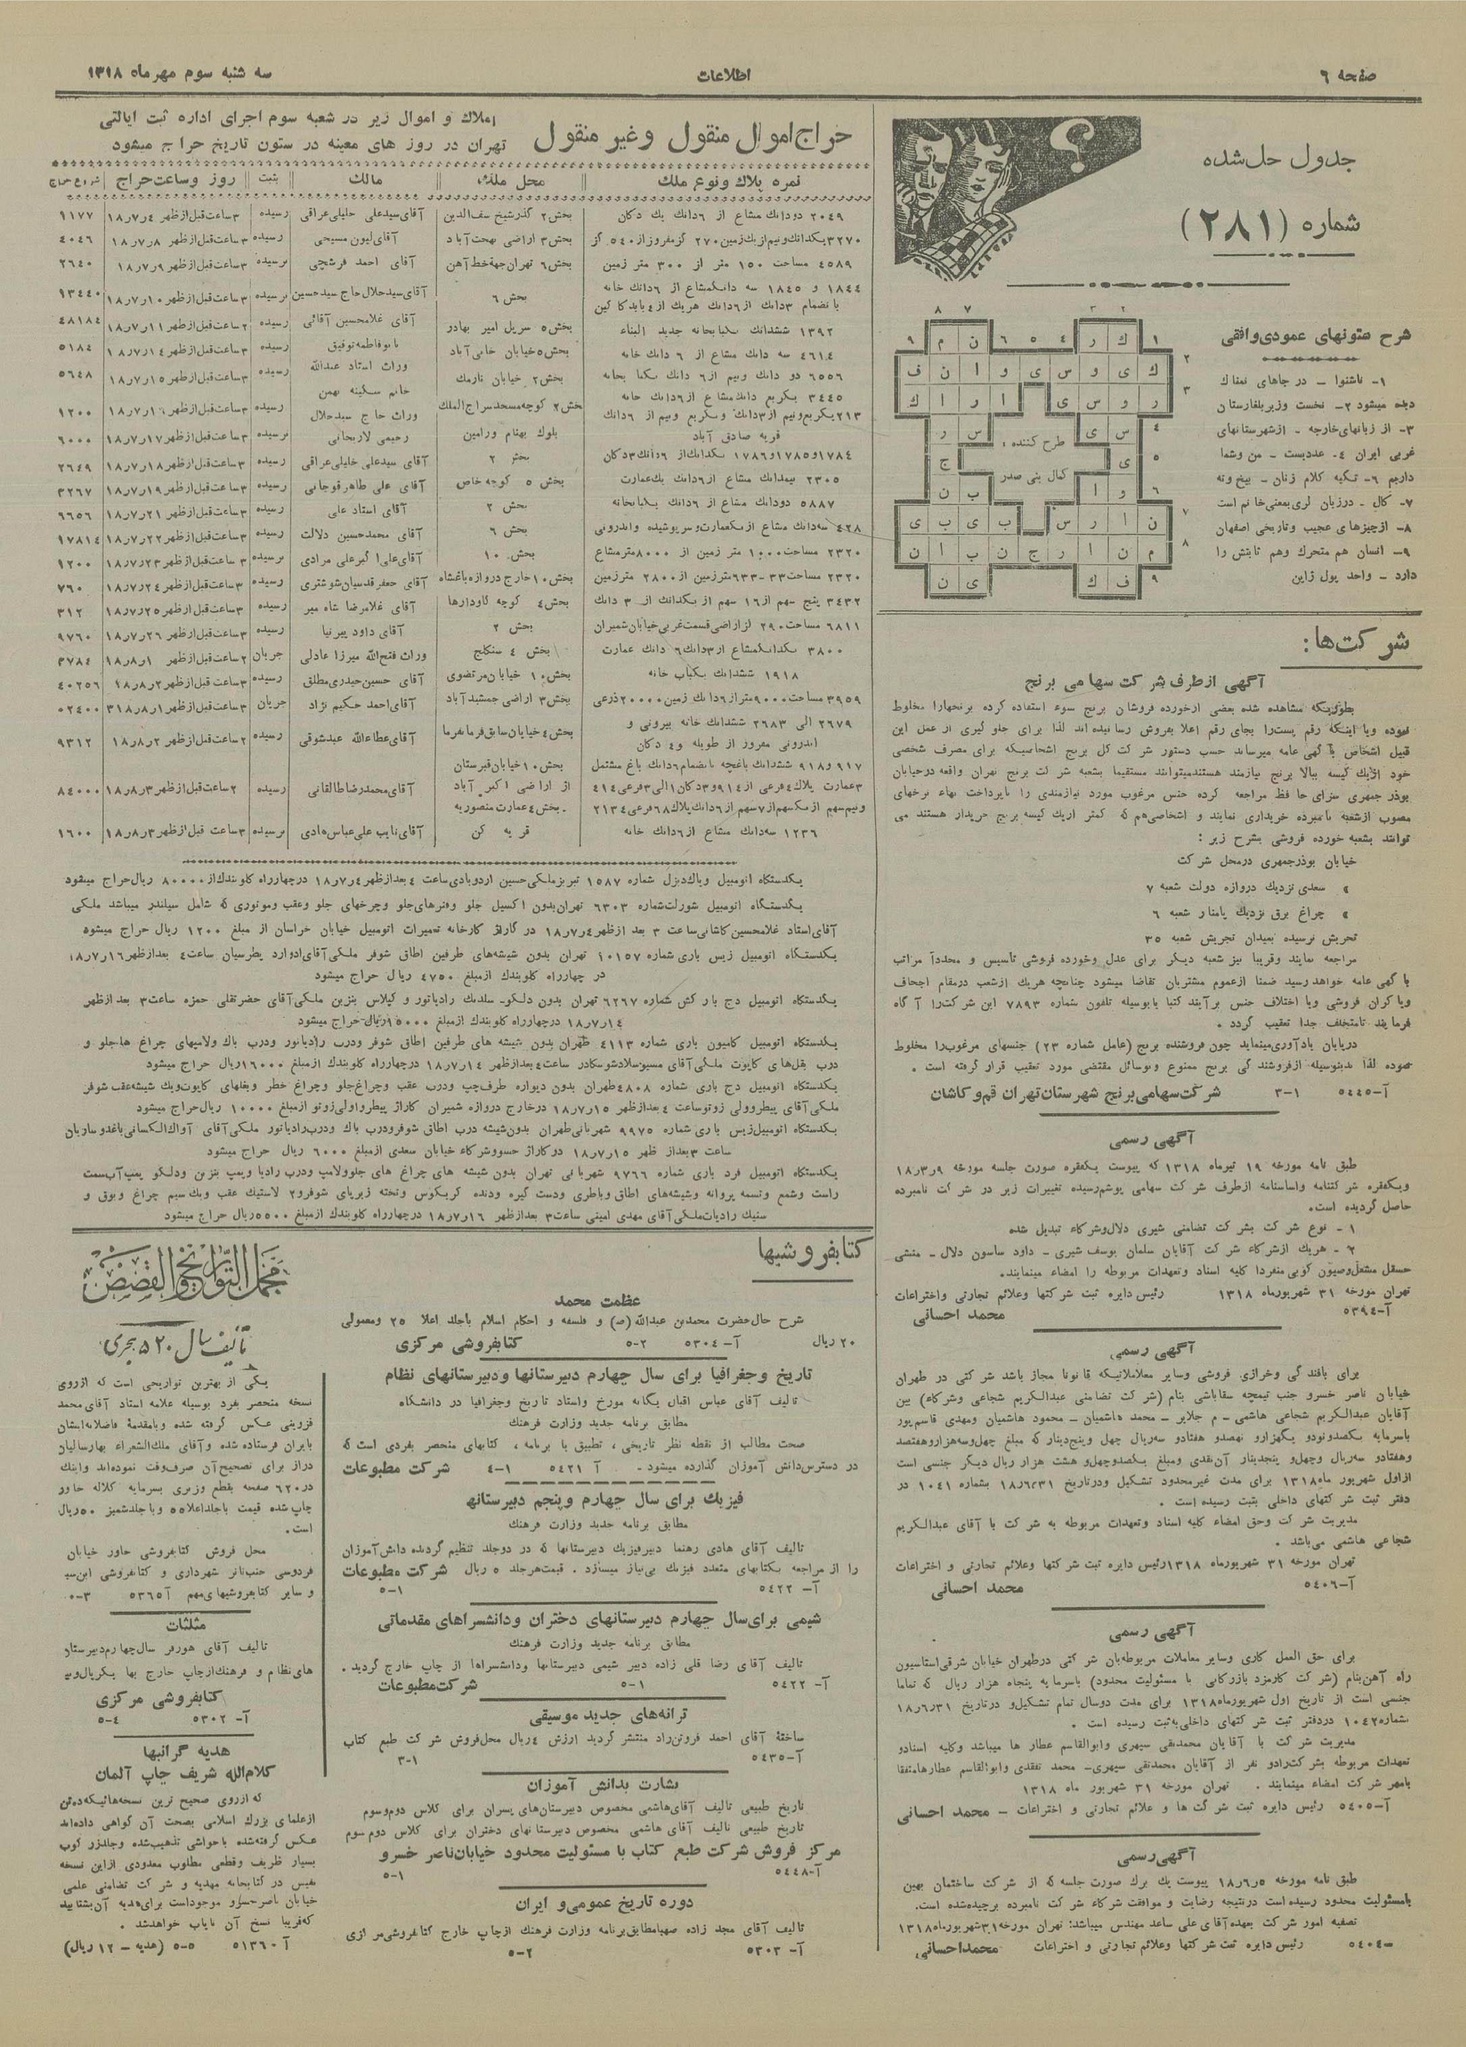 صفحه ۶
اطلاعات
سه شنبه سوم مهرماه ۱۳۱۸
جدول حل شده
شماره (۲۸۱)
شرح ستونهای عمودی وافقی
۱- ناشنوا - در جاهای نمناك
دیده میشود ۲- نخست وزیر بلغارستان
۳- از زبانهای خارجه - از شهرستانهای
غربی ایران ۴- عددیست - من وشما
داریم ۶- تکیه کلام زنان - بیخ وته
۷- کال - درزبان لری بمعنی خانم است
۸- ازچیزهای عجیب وتاریخی اصفهان
۹- انسان هم متحرك وهم تابش را
دارد - واحد پول ژاپن
طرح کننده :
کمال بنی صدر
شرکت‌ها:
آگهی ازطرف شرکت سهامی برنج
بطوریکه مشاهده شده بعضی ازخورده فروشان برنج سوء استفاده کرده برنجهارا مخلوط
نموده ویا اینکه رقم پست را بجای رقم اعلا بفروش رسانیده‌اند لذا برای جلوگیری از عمل این
قبیل اشخاص باگهی عامه میرساند حسب دستور شرکت کل برنج اشخاصیکه برای مصرف شخصی
خود ازیك کیسه ببالا برنج نیازمند هستند میتوانند مستقیما بشعبه شرکت برنج تهران واقعه دوخیابان
بوذرجمهری سرای حافظ مراجعه کرده جنس مرغوب مورد نیازمندی را باپرداخت بهاء نرخهای
مصوب ازشعبه نامبرده خریداری نمایند و اشخاصی هم که کمتر ازیك کیسه برنج خریدار هستند می
توانند بشعبه خورده فروشی بشرح زیر :
خیابان بوذرجمهری درمحل شرکت
» سعدی نزدیك دروازه دولت شعبه ۷
» چراغ برق نزدیك پامنار شعبه ۶
تجریش نرسیده بمیدان تجریش شعبه ۳۵
مراجعه نمایند وقریبا نیز شعبه دیگر برای عدل وخورده فروشی تأسیس و مجدداً مراتب
باگهی عامه خواهد رسید ضمنا ازعموم مشتریان تقاضا میشود چنانچه هریك ازشعب درمقام اجحاف
ویاگران فروشی ویا اختلاف جنس برآیند کتبا یابوسیله تلفون شماره ۷۸۹۳ این شرکت را آگاه
فرمایند تامتخلف جدا تعقیب گردد .
درپایان یادآوری مینماید چون فروشنده برنج (عامل شماره ۲۳) جنسهای مرغوب را مخلوط
نموده لذا بدینوسیله ازفروشندگی برنج ممنوع وبوسائل مقتضی مورد تعقیب قرار گرفته است .
آ-۵۴۴۵ ۱-۳ شرکت سهامی برنج شهرستان تهران قم و کاشان
آگهی رسمی
طبق نامه مورخه ۱۹ تیرماه ۱۳۱۸ که پیوست یکفقره صورت جلسه مورخه ۱۸ر۳ر۹
ویکفقره شرکتنامه واساسنامه ازطرف شرکت سهامی یوشم رسیده تغییرات زیر در شرکت نامبرده
حاصل گردیده است.
۱ - نوع شرکت بشرکت تضامنی شیری دلال وشرکاء تبدیل شده
۲ - هریك ازشرکاء شرکت آقایان سلمان یوسف شیری - داود ساسون دلال - منشی
حسقل مشعل وصیون کوبی منفردا کلیه اسناد وتعهدات مربوطه را امضاء مینمایند.
تهران مورخه ۳۱ شهریورماه ۱۳۱۸ رئیس دایره ثبت شرکتها وعلائم تجارتی واختراعات
آ-۵۳۹۴ محمد احسانی
آگهی رسمی
برای بافندگی وخرازی فروشی وسایر معاملاتیکه قانونا مجاز باشد شرکتی در طهران
خیابان ناصر خسرو جنب تیمچه سقاباشی بنام (شرکت تضامنی عبدالکریم شجاعی وشرکاء) بین
آقایان عبدالکریم شجاعی هاشمی - م جلایر - محمد هاشمیان - محمود هاشمیان ومهدی قاسم پور
باسرمایه یکصدونودو یکهزارو نهصدو هفتادو سه ریال چهل وپنج دینار که مبلغ چهل وسه هزاروهفتصد
وهفتادو سه ریال وچهل و پنج دینار آن نقدی ومبلغ یکصدوچهل و هشت هزار ریال دیگر جنسی است
ازاول شهریور ماه ۱۳۱۸ برای مدت غیرمحدود تشکیل ودرتاریخ ۱۸ر۶ر۳۱ بشماره ۱۰۴۱ در
دفتر ثبت شرکتهای داخلی بثبت رسیده است .
مدیریت شرکت وحق امضاء کلیه اسناد وتعهدات مربوطه به شرکت با آقای عبدالکریم
شجاعی هاشمی می‌باشد .
تهران مورخه ۳۱ شهریورماه ۱۳۱۸ رئیس دایره ثبت شرکتها وعلائم تجارتی و اختراعات
آ-۵۴۰۶ محمد احسانی
آگهی رسمی
برای حق العمل کاری وسایر معاملات مربوطه بان شرکتی درطهران خیابان شرقی استاسیون
راه آهن بنام (شرکت کارمزد بازرکانی با مسئولیت محدود) باسرمایه پنجاه هزار ریال که تماما
جنسی است از تاریخ اول شهریورماه ۱۳۱۸ برای مدت دوسال تمام تشکیل و درتاریخ ۱۸ر۶ر۳۱
بشماره ۱۰۴۲ دردفتر ثبت شرکتهای داخلی به ثبت رسیده است .
مدیریت شرکت با آقایان محمدنقی سپهری وابوالقاسم عطارها میباشد وکلیه اسنادو
تعهدات مربوطه بشرکت رادو نفر از آقایان محمدتقی سپهری- محمد تفقدی وابوالقاسم عطارها متفقا
بامهر شرکت امضاء مینمایند . تهران مورخه ۳۱ شهریور ماه ۱۳۱۸
آ-۵۴۰۵ رئیس دایره ثبت شرکت ها و علائم تجارتی و اختراعات - محمد احسانی
آگهی رسمی
طبق نامه مورخه ۱۸ر۶ر۵ پیوست یك برك صورت جلسه که از شرکت ساختمان بهین
بامسئولیت محدود رسیده است درنتیجه رضایت و موافقت شرکاء شرکت نامبرده برچیده شده است.
تصفیه امور شرکت بعهده آقای علی ساعد مهندس میباشد: تهران مورخه ۳۱ شهریورماه ۱۳۱۸
-۵۴۰۴ رئیس دایره ثبت شرکتها وعلائم تجارتی و اختراعات محمد احسانی
حراج اموال منقول وغیر منقول
املاك و اموال زیر در شعبه سوم اجرای اداره ثبت ایالتی
تهران در روز های معینه در ستون تاریخ حراج میشود
نمره پلاك ونوع ملك محل ملك مالك ثبت روز وساعت حراج شروع حراج
۲۰۴۹ دودانك مشاع از ۶دانك یك دکان بخش ۲ گذر شیخ سف الدین آقای سیدعلی خلیلی عراقی رسیده ۳ ساعت قبل از ظهر ۱۸ر۷ر۴ ۱۱۷۷
۳۲۷۰ یکدانك ونیم از یك زمین ۲۷۰ گز مفروز از ۵۴۰ گز بخش ۳ اراضی بهجت آباد آقای لیون مسیحی رسیده ۳ ساعت قبل از ظهر ۱۸ر۷ر۸ ۴۰۴۶
۴۵۸۹ مساحت ۱۵۰ متر از ۳۰۰ متر زمین بخش ۶ تهران جهة خط آهن آقای احمد فرشچی نرسیده ۳ ساعت قبل از ظهر ۱۸ر۷ر۹ ۲۶۴۰
۱۸۴۴ و ۱۸۴۵ سه دانك مشاع از ۶ دانك خانه بخش ۶ آقای سیدجلال حاج سیدحسین نرسیده ۳ ساعت قبل از ظهر ۱۸ر۷ر۱۰ ۹۳۴۴۰
با نضمام ۳دانك از ۶دانك هریك از ۴ بابدکاکین
۱۳۹۲ ششدانك یکبابخانه جدید البناء بخش ۵ سرپل امیر بهادر آقای غلامحسین آقائی رسیده ۲ ساعت قبل از ظهر ۱۸ر۷ر۱۱ ۴۸۱۸۴
۴۶۱۴ سه دانك مشاع از ۶ دانك خانه بخش ۵ خیابان خانی آباد بانو فاطمه توفیق رسیده ۳ ساعت قبل از ظهر ۱۸ر۷ر۱۴ ۵۱۸۴
۶۵۵۶ دو دانك ونیم از ۶ دانك یکبابخانه بخش ۲ خیابان نارمك وراث استاد عبدالله رسیده ۳ ساعت قبل از ظهر ۱۸ر۷ر۱۵ ۵۶۴۸
۳۴۴۵ یکربع دانك مشاع از ۶ دانك خانه بخش ۲ کوچه مسجد سراج الملك خانم سکینه بهمن
۲۱۳ یکربع ونیم از ۳دانك ویکربع ونیم از ۶دانك وراث حاج سید جلال ۱۲۰۰
قریه صادق آباد بلوك بهنام ورامین رحیمی لاریجانی رسیده ۳ ساعت قبل از ظهر ۱۸ر۷ر۱۷ ۶۰۰۰
۱۷۸۴ و ۱۷۸۵ و ۱۷۸۶ یکدانك از ۶دانك ۳دکان بخش ۲ آقای سیدعلی خلیلی عراقی رسیده ۳ ساعت قبل از ظهر ۱۸ر۷ر۱۸ ۲۶۴۹
۲۳۰۵ نیمدانك مشاع از ۶دانك یك عمارت بخش ۵ کوچه خاص آقای علی طاهر قوچانی رسیده ۳ ساعت قبل از ظهر ۱۸ر۷ر۱۹ ۳۲۶۷
۵۸۸۷ دودانك مشاع از ۶دانك یکبابخانه بخش ۲ آقای استاد علی رسیده ۳ ساعت قبل از ظهر ۱۸ر۷ر۲۱ ۹۶۵۶
۴۲۸ سه دانك مشاع از یکعمارت وسرپوشیده واندرونی بخش ۶ آقای محمدحسین دلالت رسیده ۳ ساعت قبل از ظهر ۱۸ر۷ر۲۲ ۹۷۸۱۴
۲۳۲۰ مساحت ۱۰۰۰ متر زمین از ۸۰۰۰ متر مشاع بخش ۱۰ آقای علی اکبر علی مرادی نرسیده ۳ ساعت قبل از ظهر ۱۸ر۷ر۲۳ ۱۲۰۰
۲۳۲۰ مساحت ۳۳-۶۳۳ متر زمین از ۲۸۰۰ متر زمین بخش ۱۰ خارج دروازه باغشاه آقای جعفر قدسیان شوشتری رسیده ۳ ساعت قبل از ظهر ۱۸ر۷ر۲۴ ۷۶۰
۳۴۳۲ پنج سهم از ۱۶ سهم از یکدانك از ۳ دانك بخش ۴ کوچه گاودارها آقای غلامرضا شاه میر رسیده ۳ ساعت قبل از ظهر ۱۸ر۷ر۲۵ ۳۱۲
۶۸۱۱ مساحت ۲۹۰ از اراضی قسمت غربی خیابان شمیران بخش ۲ آقای داود پیرنیا رسیده ۳ ساعت قبل از ظهر ۱۸ر۷ر۲۶ ۹۷۶۰
۳۸۰۰ یکدانك مشاع از ۳دانك ۶ دانك عمارت بخش ۴ سنگلج وراث فتح الله میرزا عادلی جریان ۲ ساعت قبل از ظهر ۱۸ر۸ر۱ ۳۷۸۴
۱۹۱۸ ششدانك یکباب خانه بخش ۱۰ خیابان مرتضوی آقای حسین حیدری مطلق رسیده ۳ ساعت قبل از ظهر ۱۸ر۸ر۲ ۴۰۲۵۶
۳۹۵۹ مساحت ۹۰۰۰ متر از ۶دانك زمین ۲۰۰۰۰ ذرعی بخش ۳ اراضی جمشید آباد آقای احمد حکیم نژاد جریان ۳ ساعت قبل از ظهر ۳۱۸ر۸ر۱ ۵۲۴۰۰
۲۶۷۹ الی ۲۶۸۳ ششدانك خانه بیرونی و بخش ۴ خیابان سابق فرمانفرما آقای عطاءالله عبدشوقی رسیده ۲ ساعت قبل از ظهر ۱۸ر۸ر۲ ۹۳۱۲
اندرونی مفروز از طویله و ۴ دکان
۹۱۷ و ۹۱۸ ششدانك باغچه بانضمام ۶دانك باغ مشتمل بخش ۱۰ خیابان قبرستان
۳ عمارت پلاك ۴فرعی از ۹۱۴ و۳دکان ۱الی ۳فرعی ۴۱۴ از اراضی اکبر آباد آقای محمدرضا طالقانی رسیده ۲ ساعت قبل از ظهر ۱۸ر۸ر۳ ۸۴۰۰۰
ونیم سهم از یکسهم از ۷سهم از ۶دانك پلاك ۶۸فرعی ۲۱۳۴ بخش ۴ عمارت منصوریه
۱۲۳۶ سه دانك مشاع از ۶دانك خانه قریه کن آقای نایب علی عباس هادی نرسیده ۳ ساعت قبل از ظهر ۱۸ر۸ر۳ ۱۶۰۰
یکدستگاه اتومبیل وباك دیزل شماره ۱۵۸۷ تبریز ملکی حسین اردوبادی ساعت ۴ بعد ازظهر ۱۸ر۷ر۴ درچهارراه کلوبندك از ۸۰۰۰۰ ریال حراج میشود
یکدستگاه اتومبیل شورلت شماره ۶۳۰۳ تهران بدون اکسیل جلو وفنرهای جلو وچرخهای جلو وعقب وموتوری که شامل سیلندر میباشد ملکی
آقای استاد غلامحسین کاشانی ساعت ۳ بعد ازظهر ۱۸ر۷ر۴ در گاراژ کارخانه تعمیرات اتومبیل خیابان خراسان از مبلغ ۱۲۰۰ ریال حراج میشود
یکدستگاه اتومبیل زیس باری شماره ۱۰۱۵۷ تهران بدون شیشه‌های طرفین اطاق شوفر ملکی آقای ادوارد پطرسیان ساعت ۴ بعدازظهر ۱۸ر۷ر۱۶
در چهارراه کلوبندك ازمبلغ ۴۷۵۰ ریال حراج میشود
یکدستگاه اتومبیل دج بارکش شماره ۶۲۶۷ تهران بدون دلکو- سلدیك رادیاتور و گیلاس بنزین ملکی آقای حضرتقلی حمزه ساعت ۳ بعدازظهر
۱۸ر۷ر۱۴ درچهارراه کلوبندك ازمبلغ ۱۵۰۰۰ریال حراج میشود
یکدستگاه اتومبیل کامیون باری شماره ۴۱۱۳ طهران بدون شیشه های طرفین اطاقی شوفر ودرب رادیاتور ودرب باك ولامپهای چراغ هاجلو و
درب بغل‌های کاپوت ملکی آقای مسیو سلادشو سکادر ساعت ۴بعدازظهر ۱۸ر۷ر۱۴ درچهارراه کلوبندك ازمبلغ ۱۶۰۰۰ریال حراج میشود
یکدستگاه اتومبیل دج باری شماره ۴۸۰۸طهران بدون دیواره طرف چپ ودرب عقب وچراغ جلو وچراغ خطر وبغلهای کاپوت ویك شیشه عقب شوفر
ملکی آقای پیطر وولی زوتو ساعت ۴ بعدازظهر ۱۸ر۷ر۱۵ درخارج دروازه شمیران کاراژ پیطر واولی زوتو ازمبلغ ۱۰۰۰۰ ریال حراج میشود
یکدستگاه اتومبیل زیس باری شماره ۹۹۷۵ شهربانی طهران بدون شیشه درب اطاق شوفر ودرب باك ودرب رادیاتور ملکی آقای آواك الکسانی باغدوساریان
ساعت ۳بعداز ظهر ۱۸ر۷ر۱۵ دوکاراژ حسووشرکاء خیابان سعدی ازمبلغ ۶۰۰۰ ریال حراج میشود
یکدستگاه اتومبیل فرد باری شماره ۹۷۶۶ شهربانی تهران بدون شیشه های چراغ های جلو ولامپ ودرب رادیا وپمپ بنزین ودلکو پمپ آب سمت
راست وشمع وتسمه پروانه وشیشه‌های اطاق وباطری ودست گیره ودنده گربکوس وتخته زیرپای شوفر و۲ لاستیك عقب ویك سیم چراغ وبوق و
سنیك رادیات ملکی آقای مهدی امینی ساعت ۳ بعدازظهر ۱۸ر۷ر۱۶ درچهارراه کلوبندك ازمبلغ ۵۵۰۰ریال حراج میشود
کتابفروشیها
عظمت محمد
شرح حال حضرت محمدبن عبدالله (ص) و فلسفه و احکام اسلام باجلد اعلا ۲۵ ومعمولی
۲۰ ریال آ- ۵۳۰۴ ۲-۵ کتابفروشی مرکزی
تاریخ وجغرافیا برای سال چهارم دبیرستانها ودبیرستانهای نظام
تالیف آقای عباس اقبال یگانه مورخ واستاد تاریخ وجغرافیا در دانشگاه
مطابق برنامه جدید وزارت فرهنك
صحت مطالب از نقطه نظر تاریخی ، تطبیق با برنامه ، کتابهای منحصر بفردی است که
در دسترس دانش آموزان گذارده میشود . آ ۵۴۲۱ ۱-۴ شرکت مطبوعات
فیزیك برای سال چهارم وپنجم دبیرستانها
مطابق برنامه جدید وزارت فرهنك
تالیف آقای هادی رهنما دبیرفیزیك دبیرستانها که در دوجلد تنظیم گردیده دانش آموزان
را از مراجعه بکتابهای متعدد فیزیك بی‌نیاز میسازد . قیمت هرجلد ۵ ریال شرکت مطبوعات
آ- ۵۴۲۲ ۱-۵
شیمی برای سال چهارم دبیرستانهای دختران ودانشسراهای مقدماتی
مطابق برنامه جدید وزارت فرهنك
تالیف آقای رضا قلی زاده دبیر شیمی دبیرستانها ودانشسراها از چاپ خارج گردید .
آ- ۵۴۲۲ ۱-۵ شرکت مطبوعات
ترانه‌های جدید موسیقی
ساختهٔ آقای احمد فروتن راد منتشر گردید ارزش ۴ریال محل فروش شرکت طبع کتاب
آ-۵۴۳۵ ۱-۳
بشارت بدانش آموزان
تاریخ طبیعی تالیف آقای هاشمی مخصوص دبیرستان‌های پسران برای کلاس دوم وسوم
تاریخ طبیعی تالیف آقای هاشمی مخصوص دبیرستانهای دختران برای کلاس دوم سوم
مرکز فروش شرکت طبع کتاب با مسئولیت محدود خیابان ناصر خسرو
آ-۵۴۴۸ ۱-۵
دوره تاریخ عمومی و ایران
تالیف آقای مجد زاده صهبا مطابق برنامه وزارت فرهنك ازچاپ خارج کتابفروشی مرکزی
آ- ۵۳۰۳ ۲-۵
مجمل التواریخ والقصص
تألیف سال ۵۲۰ هجری
یکی از بهترین تواریخی است که ازروی
نسخه منحصر بفرد بوسیله علامه استاد آقای محمد
قزوینی عکس گرفته شده وبامقدمهٔ فاضلانه ایشان
بایران فرستاده شده وآقای ملك الشعراء بهار سالیان
دراز برای تصحیح آن صرف وقت نموده‌اند واینك
در ۶۲۰ صفحه بقطع وزیری بسرمایه کلاله خاور
چاپ شده قیمت باجلد اعلا ۵۵ وباجلد شمیز ۵۰ریال
است .
محل فروش کتابفروشی خاور خیابان
فردوسی جنب تاتر شهرداری و کتابفروشی ابن سینا
و سایر کتابفروشیهای مهم آ۵۳۶۵ ۳-۰
مثلثات
تالیف آقای هورفر سال چهارم دبیرستان
های نظام و فرهنك ازچاپ خارج بها یکریال ونیم
کتابفروشی مرکزی
آ- ۵۳۰۲ ۴-۵
هدیه گرانبها
کلام الله شریف چاپ آلمان
که ازروی صحیح ترین نسخه‌هائیکه دوتن
ازعلمای بزرك اسلامی بصحت آن گواهی داده‌اند
عکس گرفته شده باحواشی تذهیب شده وجلد زر کوب
بسیار ظریف وقطعی مطلوب معدودی ازاین نسخه
نفیس در کتابخانه مهدیه و شرکت تضامنی علمی
خیابان ناصرخسرو موجوداست برای هدیه آن بشتابید
که قریبا نسخ آن نایاب خواهدشد .
آ ۵۱۳۶۰ ۵-۵ (هدیه - ۱۲ ریال)